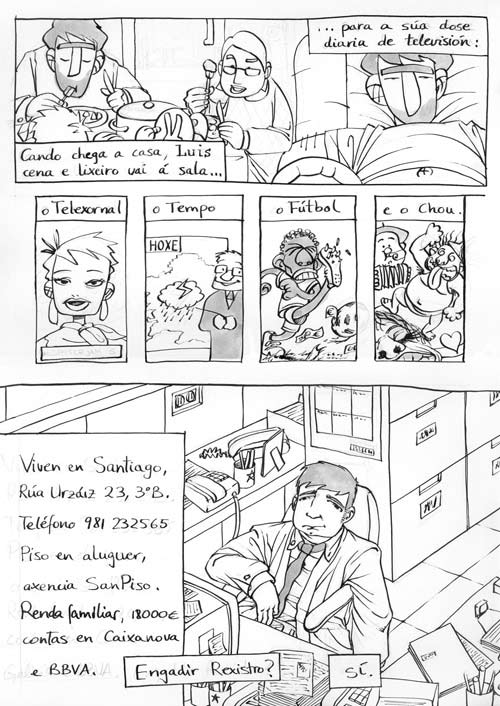 Cando chega a casa, Luis
cena e lixeiro vai á sala...
... para a súa dose
diaria de televisión:
o Telexornal
o Tempo
HOXE
o Fútbol
e o Chou.
Viven en Santiago,
Rúa Urzáiz 23, 3ºB.
Teléfono 981 232565
Piso en aluguer,
axencia SanPiso.
Renda familiar, 18000€
contas en Caixanova
e BBVA.
Engadir Rexistro?
SÍ.